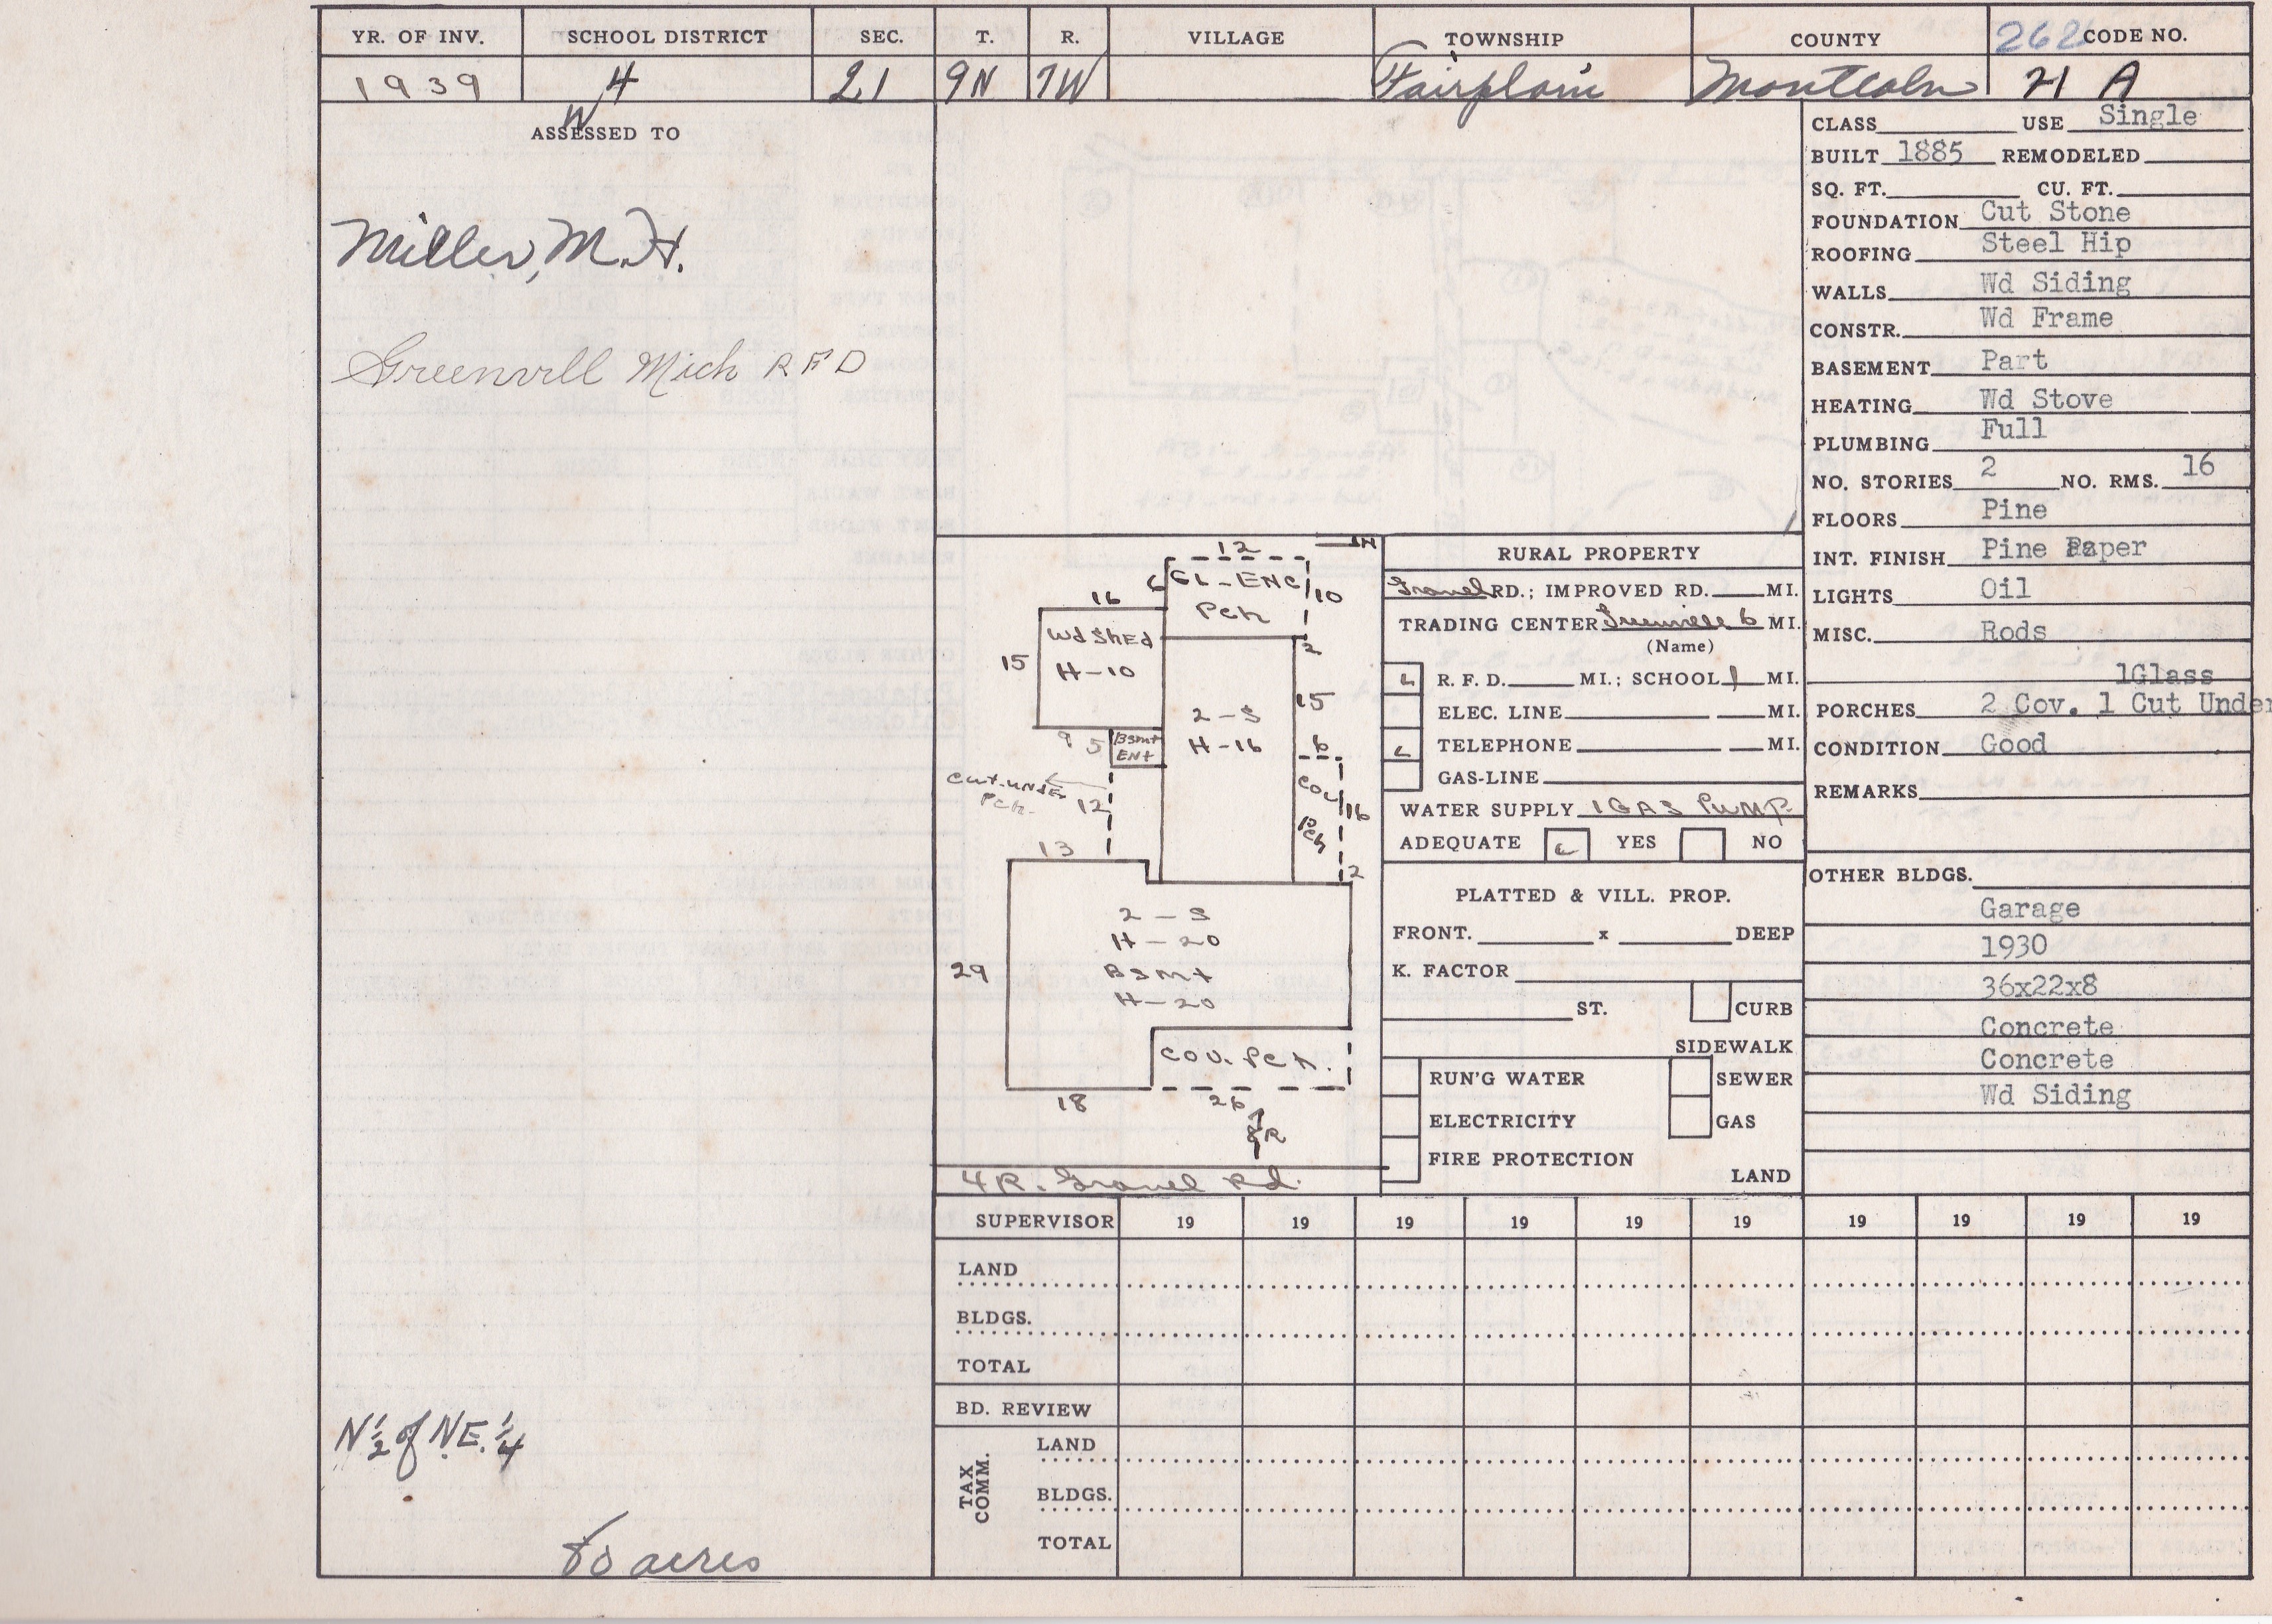 YR. OF INV. SCHOOL DISTRICT SEC. T. R. VILLAGE TOWNSHIP COUNTY CODE NO.
1939 4 21 9N 7W Fairplain Montcalm 21 A
W
ASSESSED TO
Miller, M. H.
Greenvill Mich R F D
N 1/2 of N.E. 1/4
80 acres
12
N
6 GL-ENC 10
Pch
16
Wd Shed
15 H-10
2
15
2-S
H-16
9 5 Bsmt
Ent
6
Cut-under
Pch. 12
Cov 16
Pch
13
2
2-S
H-20
29 Bsmt
H-20
Cov. Pch.
18 26
8R
4R. Gravel Rd.
RURAL PROPERTY
Gravel RD.; IMPROVED RD. MI.
TRADING CENTER Greenville 6 MI.
(Name)
R. F. D. MI.; SCHOOL 1 MI.
ELEC. LINE MI.
TELEPHONE MI.
GAS-LINE
WATER SUPPLY 1 GAS PUMP
ADEQUATE YES NO
PLATTED & VILL. PROP.
FRONT. x DEEP
K. FACTOR
ST. CURB
SIDEWALK
RUN'G WATER SEWER
ELECTRICITY GAS
FIRE PROTECTION
LAND
CLASS USE Single
BUILT 1885 REMODELED
SQ. FT. CU. FT.
FOUNDATION Cut Stone
ROOFING Steel Hip
WALLS Wd Siding
CONSTR. Wd Frame
BASEMENT Part
HEATING Wd Stove
PLUMBING Full
NO. STORIES 2 NO. RMS. 16
FLOORS Pine
INT. FINISH Pine Paper
LIGHTS Oil
MISC. Rods
1Glass
PORCHES 2 Cov. 1 Cut Under
CONDITION Good
REMARKS
OTHER BLDGS.
Garage
1930
36x22x8
Concrete
Concrete
Wd Siding
SUPERVISOR 19 19 19 19 19 19 19 19 19 19
LAND
BLDGS.
TOTAL
BD. REVIEW
TAX COMM.
LAND
BLDGS.
TOTAL